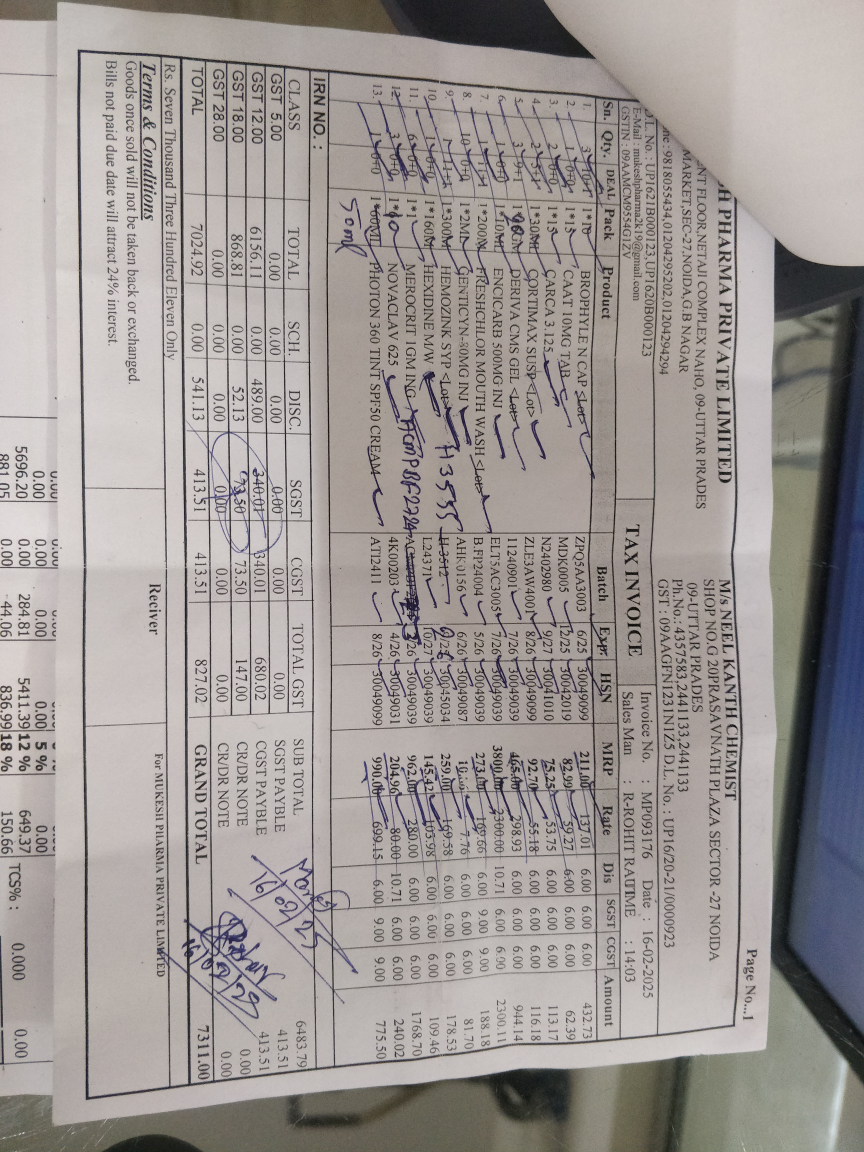 SH PHARMA PRIVATE LIMITED
ENT FLOOR,NETAJI COMPLEX NAHO, 09-UTTAR PRADES
MARKET,SEC-27,NOIDA,G.B NAGAR
:9818055434,01204295202,01204294294
D.L. No. : UP1621B000123,UP1620B000123
E-Mail : mukeshpharma2k19@gmail.com
GSTIN : 09AAMCM9554G1ZV
TAX INVOICE
Page No...1
M/s NEEL KANTH CHEMIST
SHOP NO.G 20PRASAVNATH PLAZA SECTOR -27 NOIDA
09-UTTAR PRADES
Ph.No.: 4357583,2441133,2441133
GST : 09AAGFN1231N1Z5 D.L. No. : UP16/20-21/0000923
Invoice No. : MP093176 Date : 16-02-2025
Sales Man : R-ROHIT RAUTIME : 14:03
Sn. Qty. DEAL Pack Product Batch Expr. HSN MRP Rate Dis SGST CGST Amount
1. 1*10 BROPHYLE N CAP <Lot> ZPQ5AA3003 6/25 30049099 211.00 137.01 6.00 6.00 6.00 432.73
2. 1*15 CAAT 10MG TAB MDK0005 12/25 30042019 82.99 59.27 6.00 6.00 6.00 62.39
3. 1*15 CARCA 3.125 N2402980 9/27 30041010 75.25 53.75 6.00 6.00 6.00 113.17
4. 1*30ML CORTIMAX SUSP <Lot> ZLE3AW4001 8/26 30049099 92.70 55.18 6.00 6.00 6.00 116.18
5. DERIVA CMS GEL <Lot> 11240901 7/26 30049039 465.00 298.93 6.00 6.00 6.00 944.14
6. 1*10ML ENCICARB 500MG INJ ELT5AC3005 7/26 30049039 3800.00 2300.00 10.71 6.00 6.00 2300.11
7. 1*200M FRESHCHLOR MOUTH WASH <Lot> B.FP24004 5/26 30049039 273.00 169.66 6.00 9.00 9.00 188.18
8. 1*2ML GENTICYN-80MG INJ AHK0156 6/26 30049087 7.76 6.00 6.00 6.00 81.70
9. 1*300M HEMOZINK SYP <Lot> H3535 H-3512 30045034 259.00 169.58 6.00 6.00 6.00 178.53
10. 1*160M HEXIDINE M/W L24371 10/27 30049039 145.42 103.98 6.00 6.00 6.00 109.46
11. 1*1 MEROCRIT 1GM ING 30049039 962.00 280.00 6.00 6.00 6.00 1768.70
12. NOVACLAV 625 4K00203 4/26 30049031 204.96 80.00 10.71 6.00 6.00 240.02
13. 1*60ML PHOTON 360 TINT SPF50 CREAM ATI2411 8/26 30049099 990.00 699.15 6.00 9.00 9.00 775.50
50ml
IRN NO. :
CLASS TOTAL SCH. DISC. SGST CGST TOTAL GST
GST 5.00 0.00 0.00 0.00 0.00 0.00 0.00
GST 12.00 6156.11 0.00 489.00 340.01 340.01 680.02
GST 18.00 868.81 0.00 52.13 73.50 73.50 147.00
GST 28.00 0.00 0.00 0.00 0.00 0.00 0.00
TOTAL 7024.92 0.00 541.13 413.51 413.51 827.02
SUB TOTAL 6483.79
SGST PAYBLE 413.51
CGST PAYBLE 413.51
CR/DR NOTE 0.00
CR/DR NOTE 0.00
GRAND TOTAL 7311.00
16/02/25
16/02/25
Rs. Seven Thousand Three Hundred Eleven Only
Terms & Conditions
Goods once sold will not be taken back or exchanged.
Bills not paid due date will attract 24% interest.
Reciver
For MUKESH PHARMA PRIVATE LIMITED
0.00 0.00 0.00 0.00 5 % 0.00
5696.20 0.00 284.81 5411.39 12 % 649.37
881.05 0.00 44.06 836.99 18 % 150.66
TCS% : 0.000 0.00